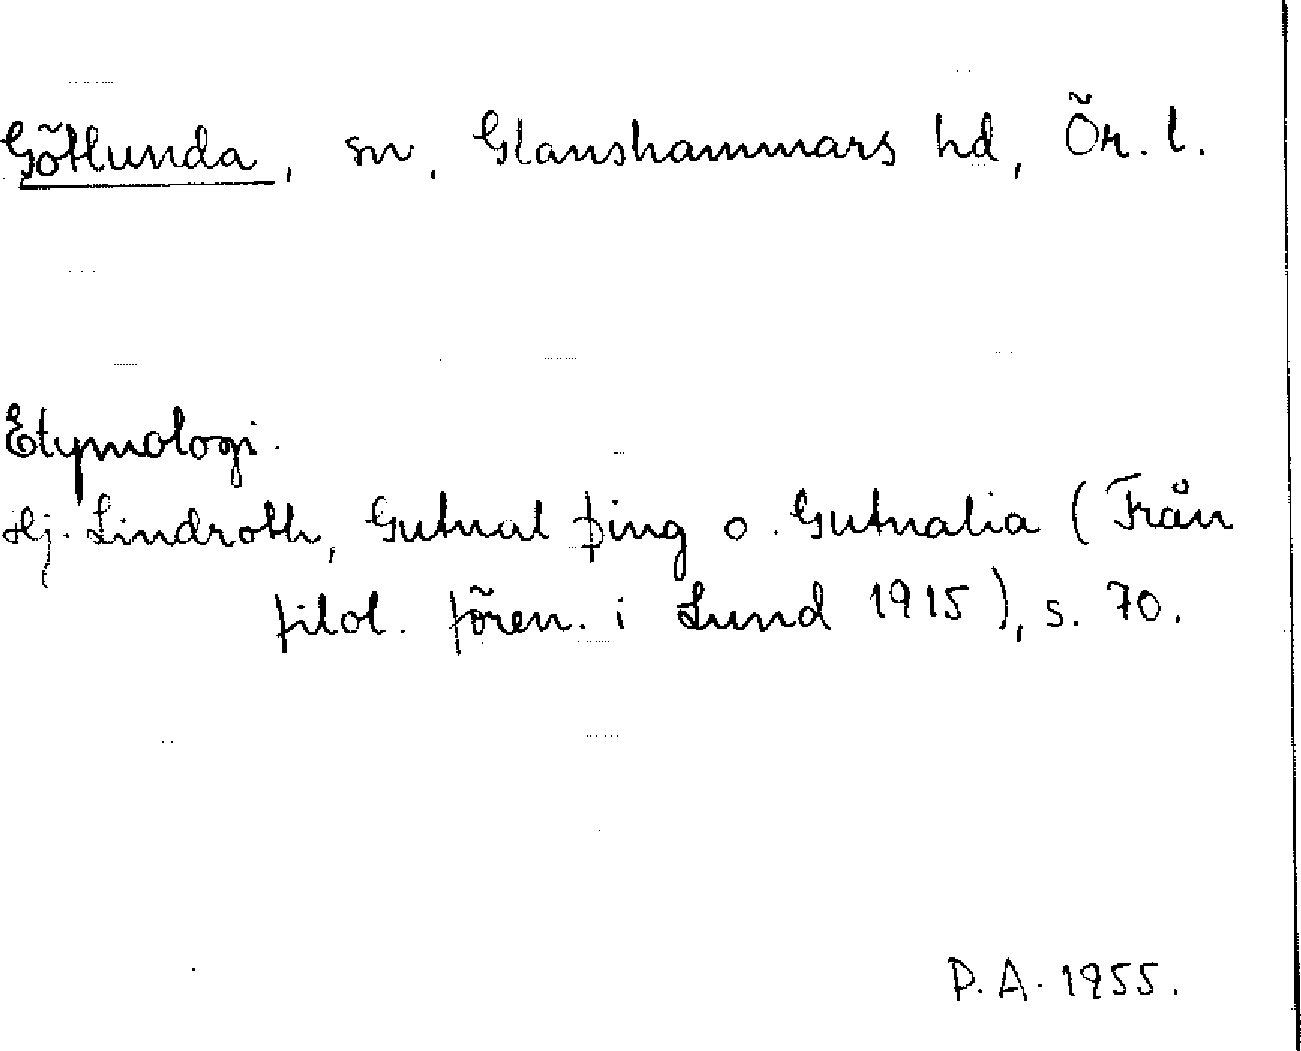 Götlunda, sn, Glanshammars hd, Ör. l.
Etymologi.
Hj. Lindroth, Gutnal þing o. Gutnalia (Från
filol. fören. i Lund 1915), s. 70.
P. A. 1955.